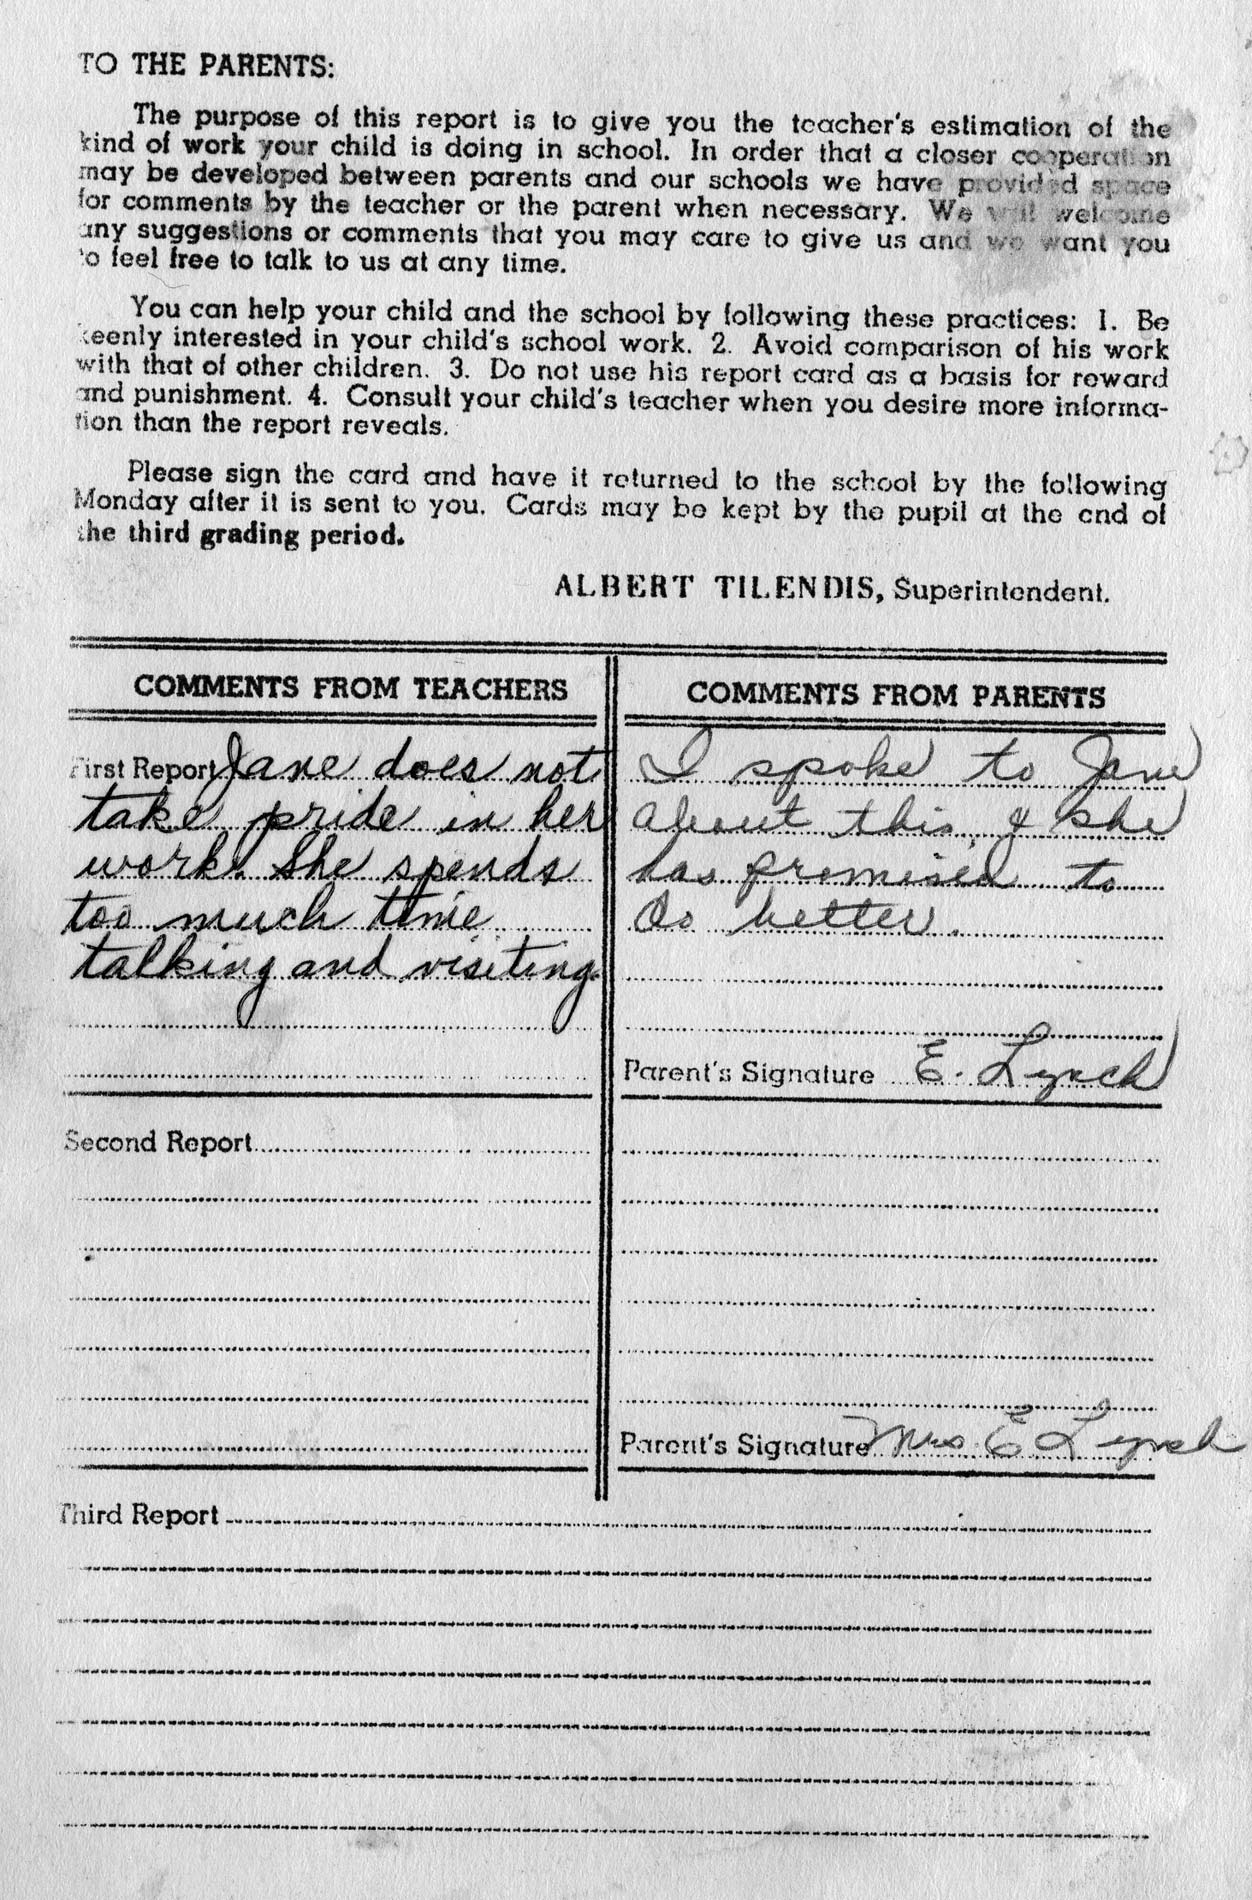 TO THE PARENTS:
The purpose of this report is to give you the teacher's estimation of the
kind of work your child is doing in school. In order that a closer cooperation
may be developed between parents and our schools we have provided space
for comments by the teacher or the parent when necessary. We will welcome
any suggestions or comments that you may care to give us and we want you
to feel free to talk to us at any time.
You can help your child and the school by following these practices: 1. Be
keenly interested in your child's school work. 2. Avoid comparison of his work
with that of other children. 3. Do not use his report card as a basis for reward
and punishment. 4. Consult your child's teacher when you desire more informa-
tion than the report reveals.
Please sign the card and have it returned to the school by the following
Monday after it is sent to you. Cards may be kept by the pupil at the end of
the third grading period.
ALBERT TILENDIS, Superintendent.
COMMENTS FROM TEACHERS
First Report Jane does not
take pride in her
work. She spends
too much time
talking and visiting.
Second Report
COMMENTS FROM PARENTS
I spoke to Jane
about this, & she
has promised to
do better.
Parent's Signature E. Lynch
Parent's Signature Mrs E Lynch
Third Report